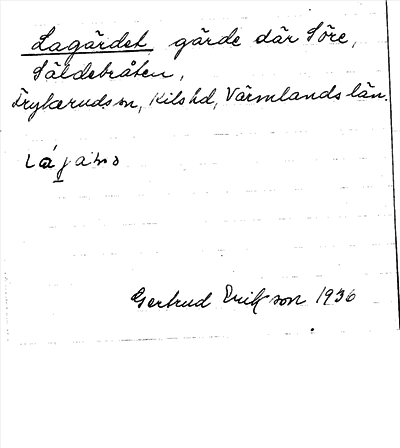 Lagärdet gärde där Söre,
Säldebråten,
Frykeruds sn, Kils hd, Värmlands län.
Gertrud Erikson 1936